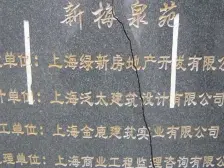 新梅泉苑
工单位：上海绿新房地产开发有限公
计单位：上海泛太建筑设计有限公司
工单位：上海金鹿建筑实业有限公司
理单位：上海商业工程监理咨询有限